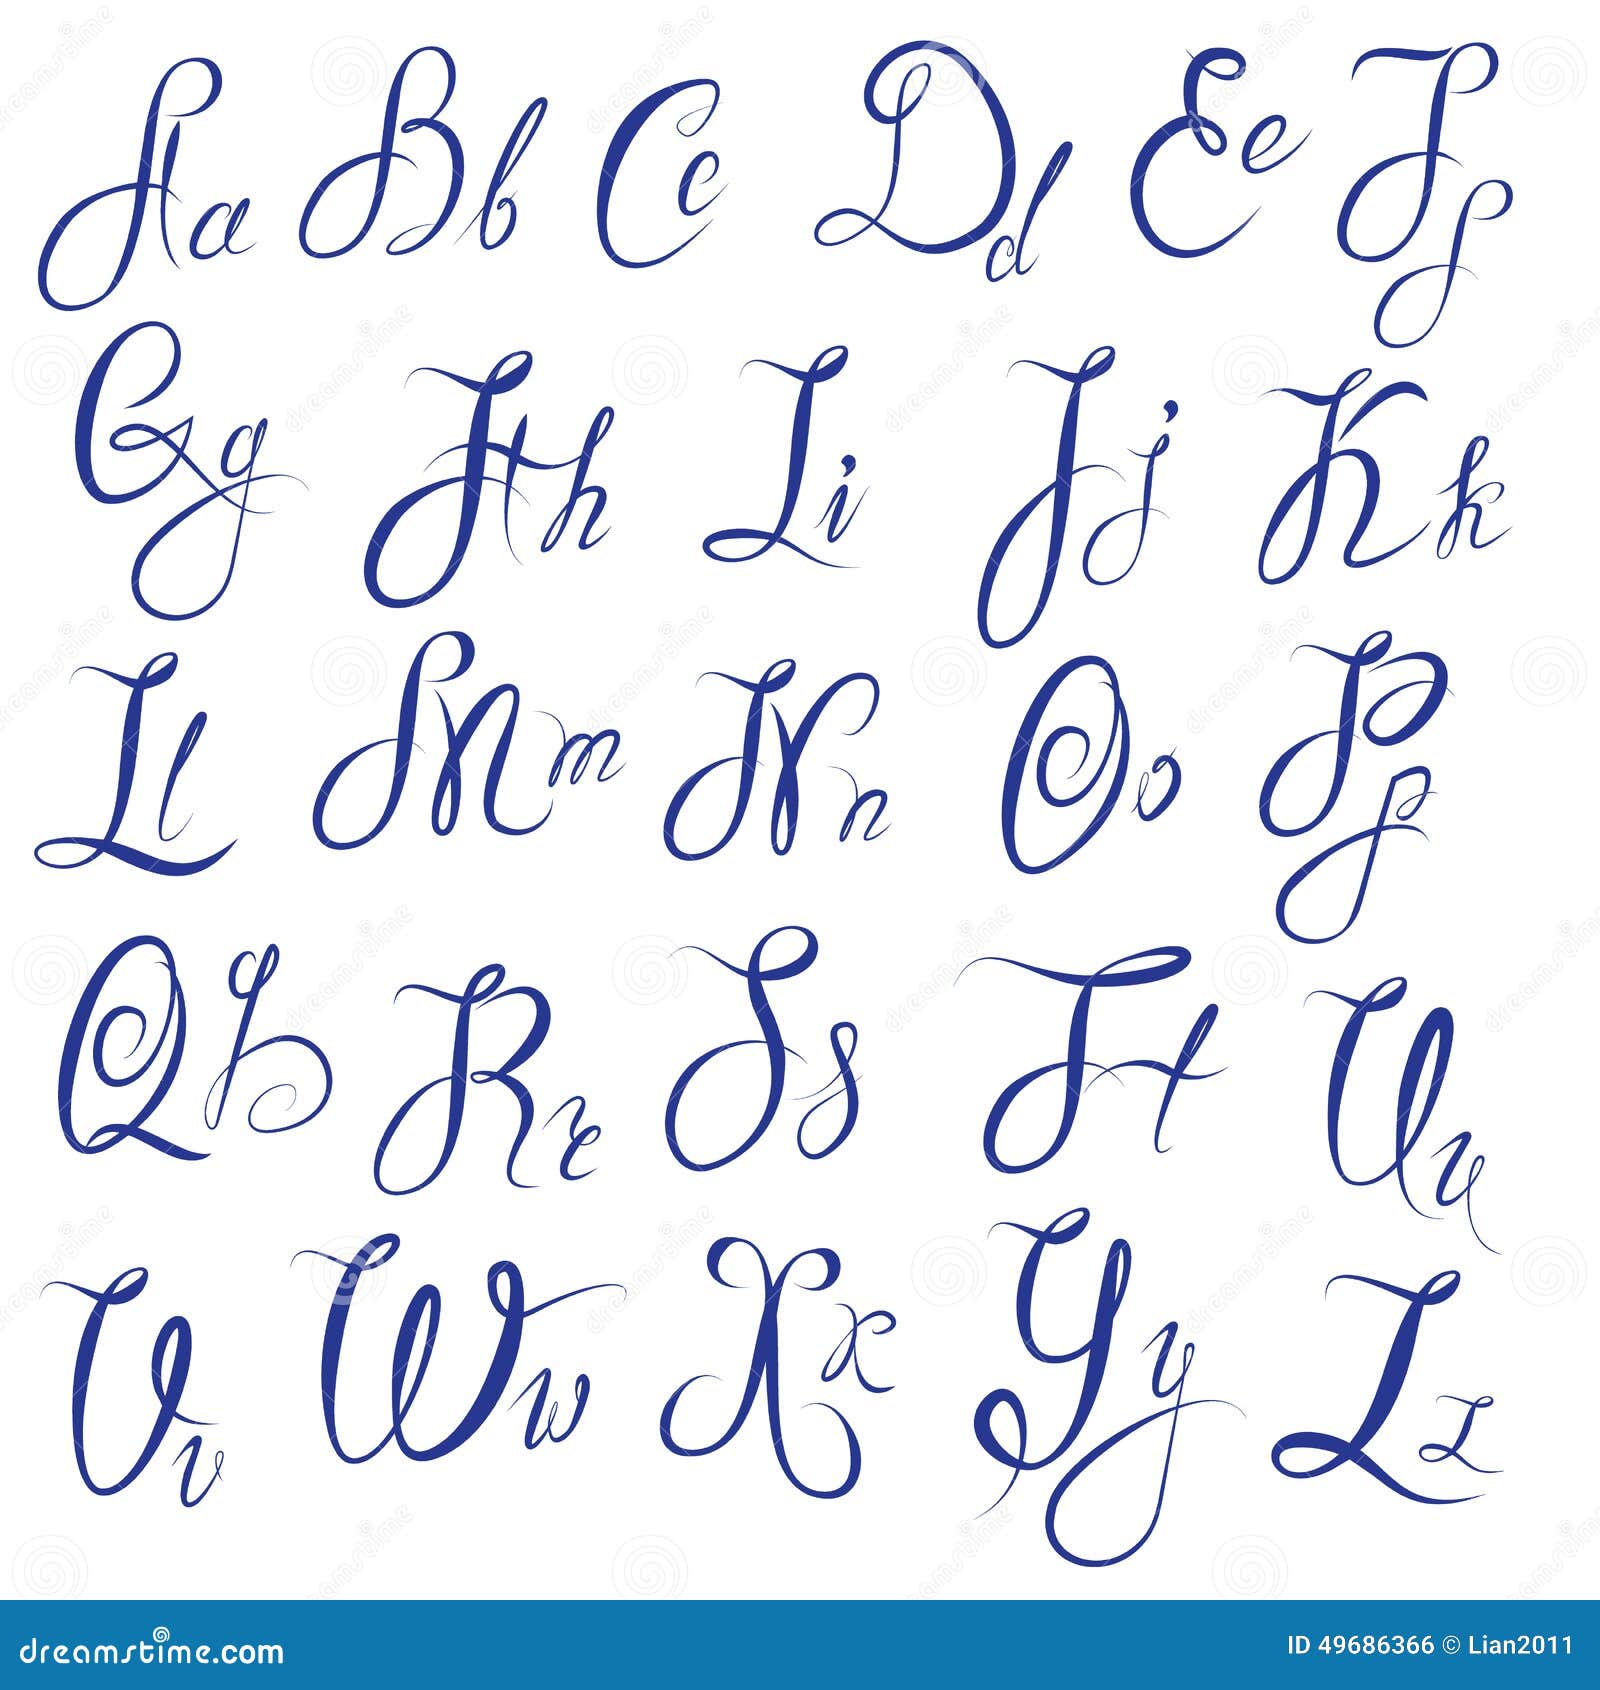 Aa Bb Cc Dd Ee Ff
Gg Hh Ii Jj Kk
Ll Mm Nn Oo Pp
Qq Rr Ss Tt Uu
Vv Ww Xx Yy Zz
dreamstime.com
ID 49686366 © Lian2011